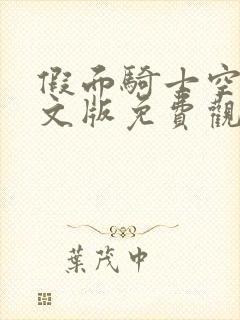 假面騎士空
文版免費觀
葉茂中